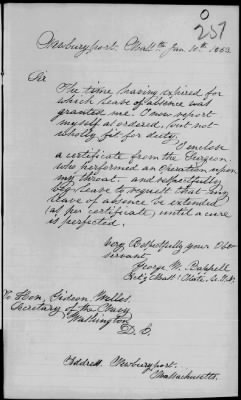 O
257
Newburyport, Massts. Jan. 10th 1863.
Sir
The time having expired for
which leave of absence was
granted me. I now report
myself as ordered, but not
wholly fit for duty.
I enclose
a certificate from the Surgeon
who performed an operation upon
my throat and respectfully
beg leave to request that my
leave of absence be extended
(as per certificate) until a cure
is perfected.
Very Respectfully your Obt
servant,
George W.
To Hon. Gideon Welles.
Secretary of the Navy
Washington
D. C.
Address. Newburyport.
Massachusetts.